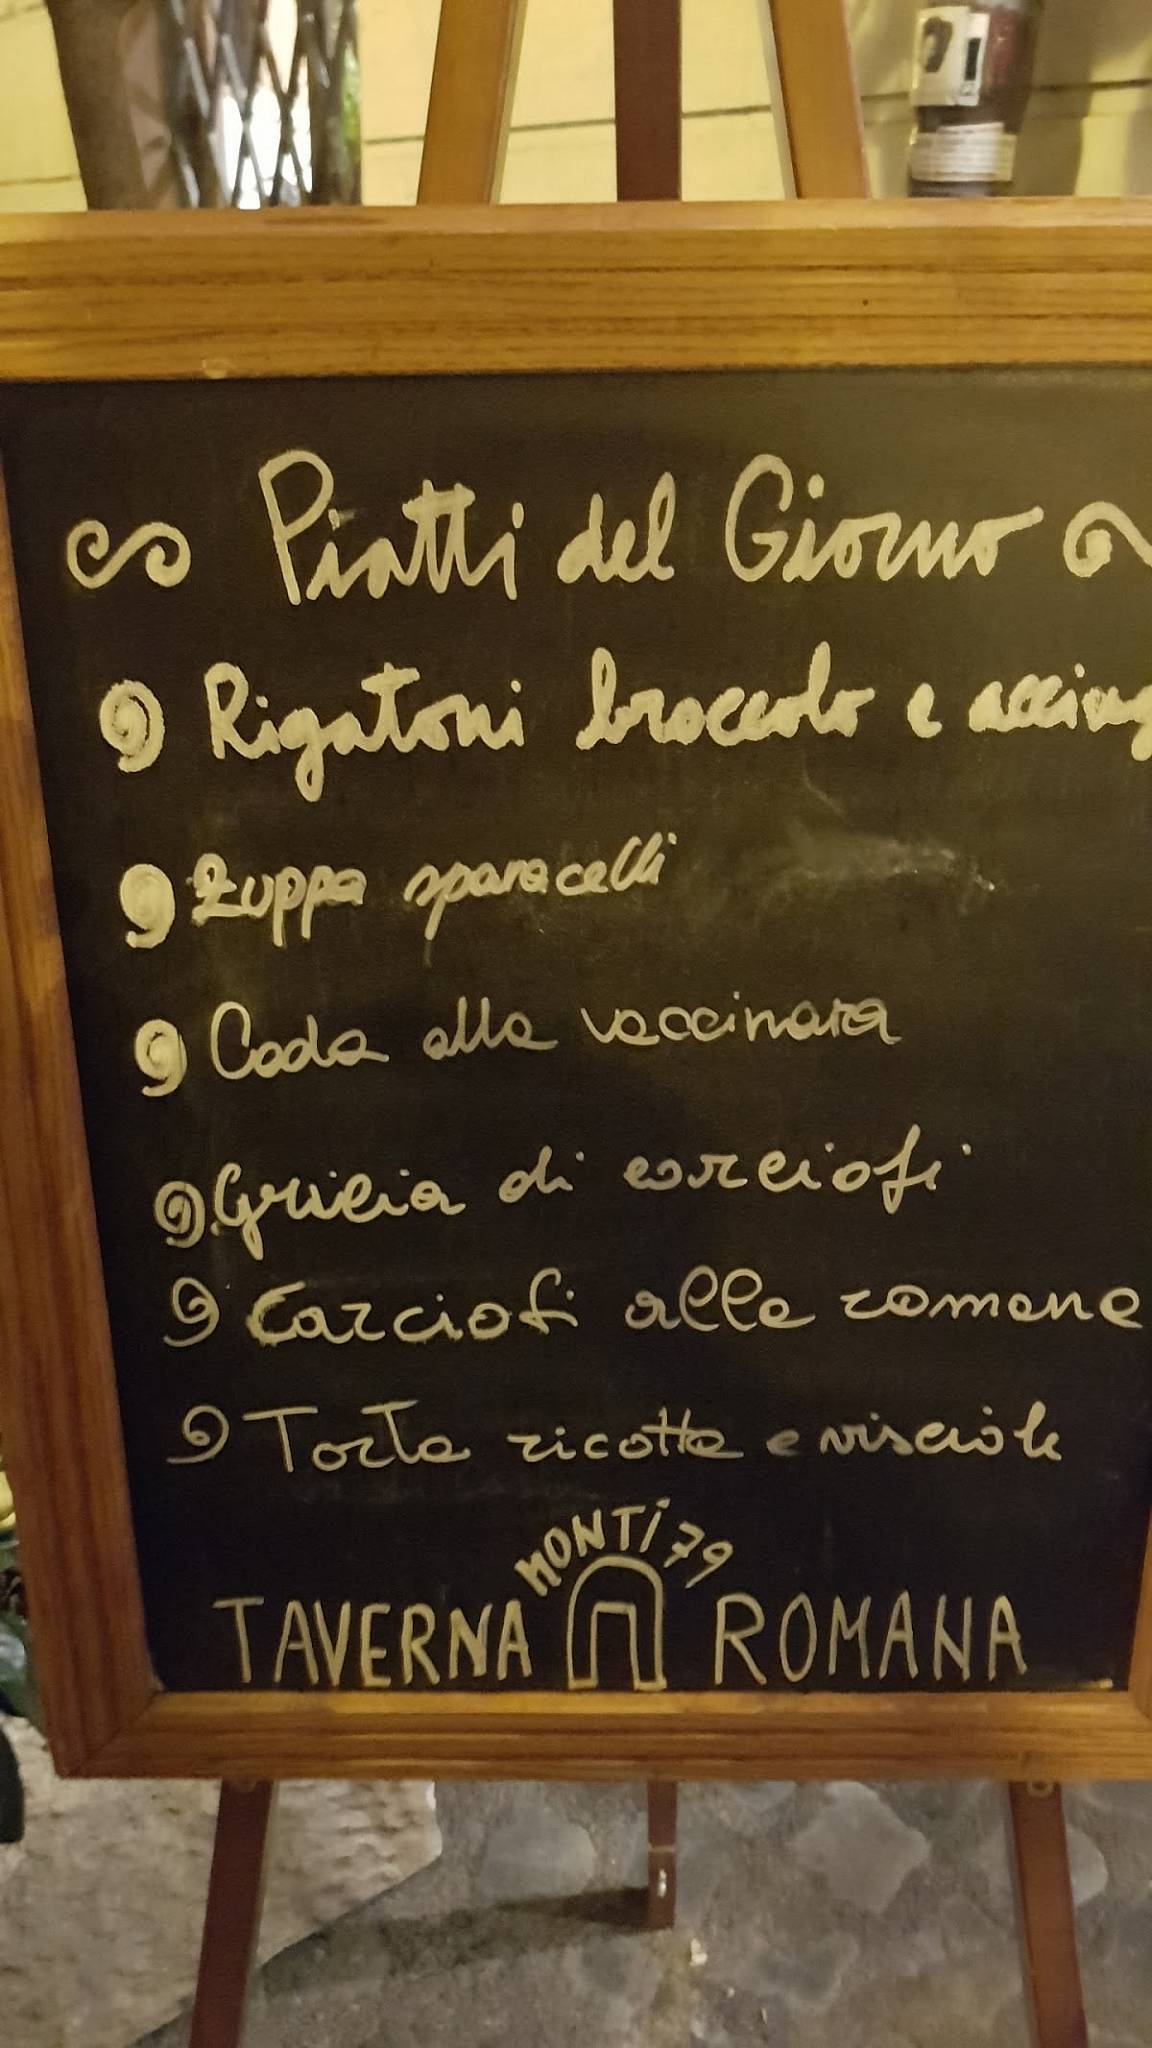 Piatti del Giorno
Rigatoni broccolo e acciug
Zuppa sparacelli
Coda alla vaccinara
Gricia di carciofi
Carciofi alla romana
Torta ricotta e visciole
MONTI 79
TAVERNA ROMANA